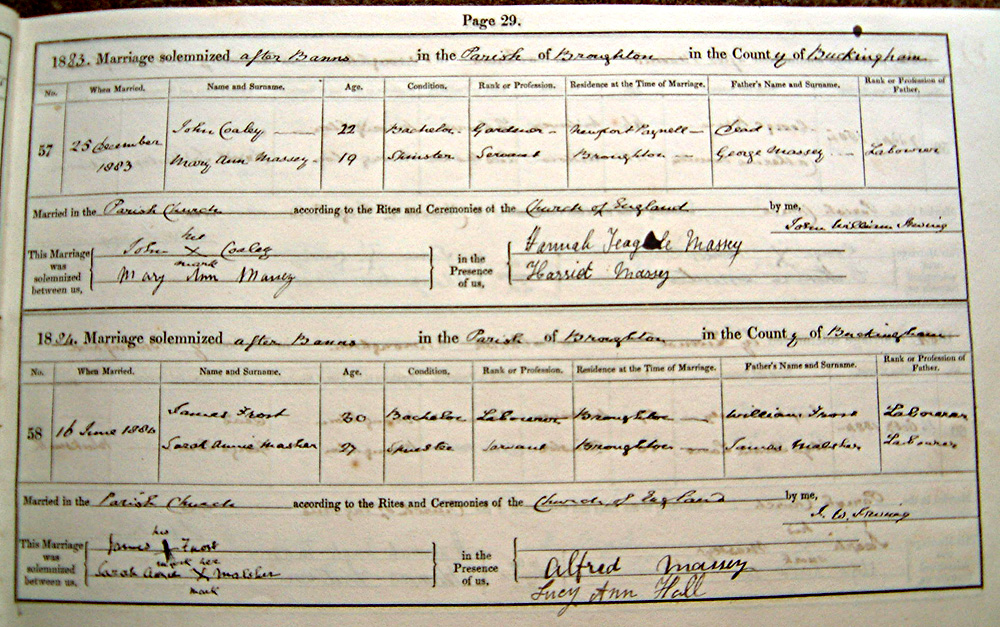 Page 29.
1883. Marriage solemnized after Banns in the Parish of Broughton in the County of Buckingham
No. When Married. Name and Surname. Age. Condition. Rank or Profession. Residence at the Time of Marriage. Father's Name and Surname. Rank or Profession of Father.
John Coaley 22 Bachelor Gardener Newport Pagnell Dead
57 25 December 1883 Mary Ann Massey 19 Spinster Servant Broughton George Massey Labourer
Married in the Parish Church according to the Rites and Ceremonies of the Church of England by me,
John William
This Marriage was solemnized between us, John his X mark Coaley in the Presence of us, Hannah Massey
Mary Ann Massey Harriet Massey
1884. Marriage solemnized after Banns in the Parish of Broughton in the County of Buckingham
No. When Married. Name and Surname. Age. Condition. Rank or Profession. Residence at the Time of Marriage. Father's Name and Surname. Rank or Profession of Father.
James Frost 20 Bachelor Labourer Broughton William Frost Labourer
58 16 June 1884 Sarah Annie 27 Spinster Servant Broughton James Labourer
Married in the Parish Church according to the Rites and Ceremonies of the Church of England by me,
J. W.
This Marriage was solemnized between us, James his mark Frost in the Presence of us, Alfred Massey
Sarah Annie her X mark Lucy Ann Hall